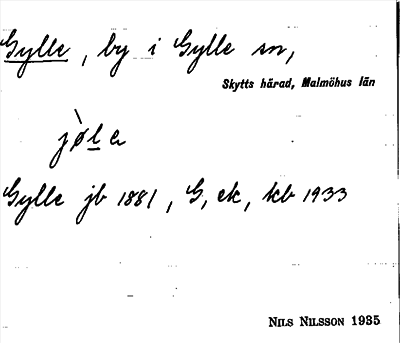 Gylle, by i Gylle sn,
Skytts härad, Malmöhus län
jø̀l̲e
Gylle jb 1881, G, ek, kb 1933
NILS NILSSON 1935